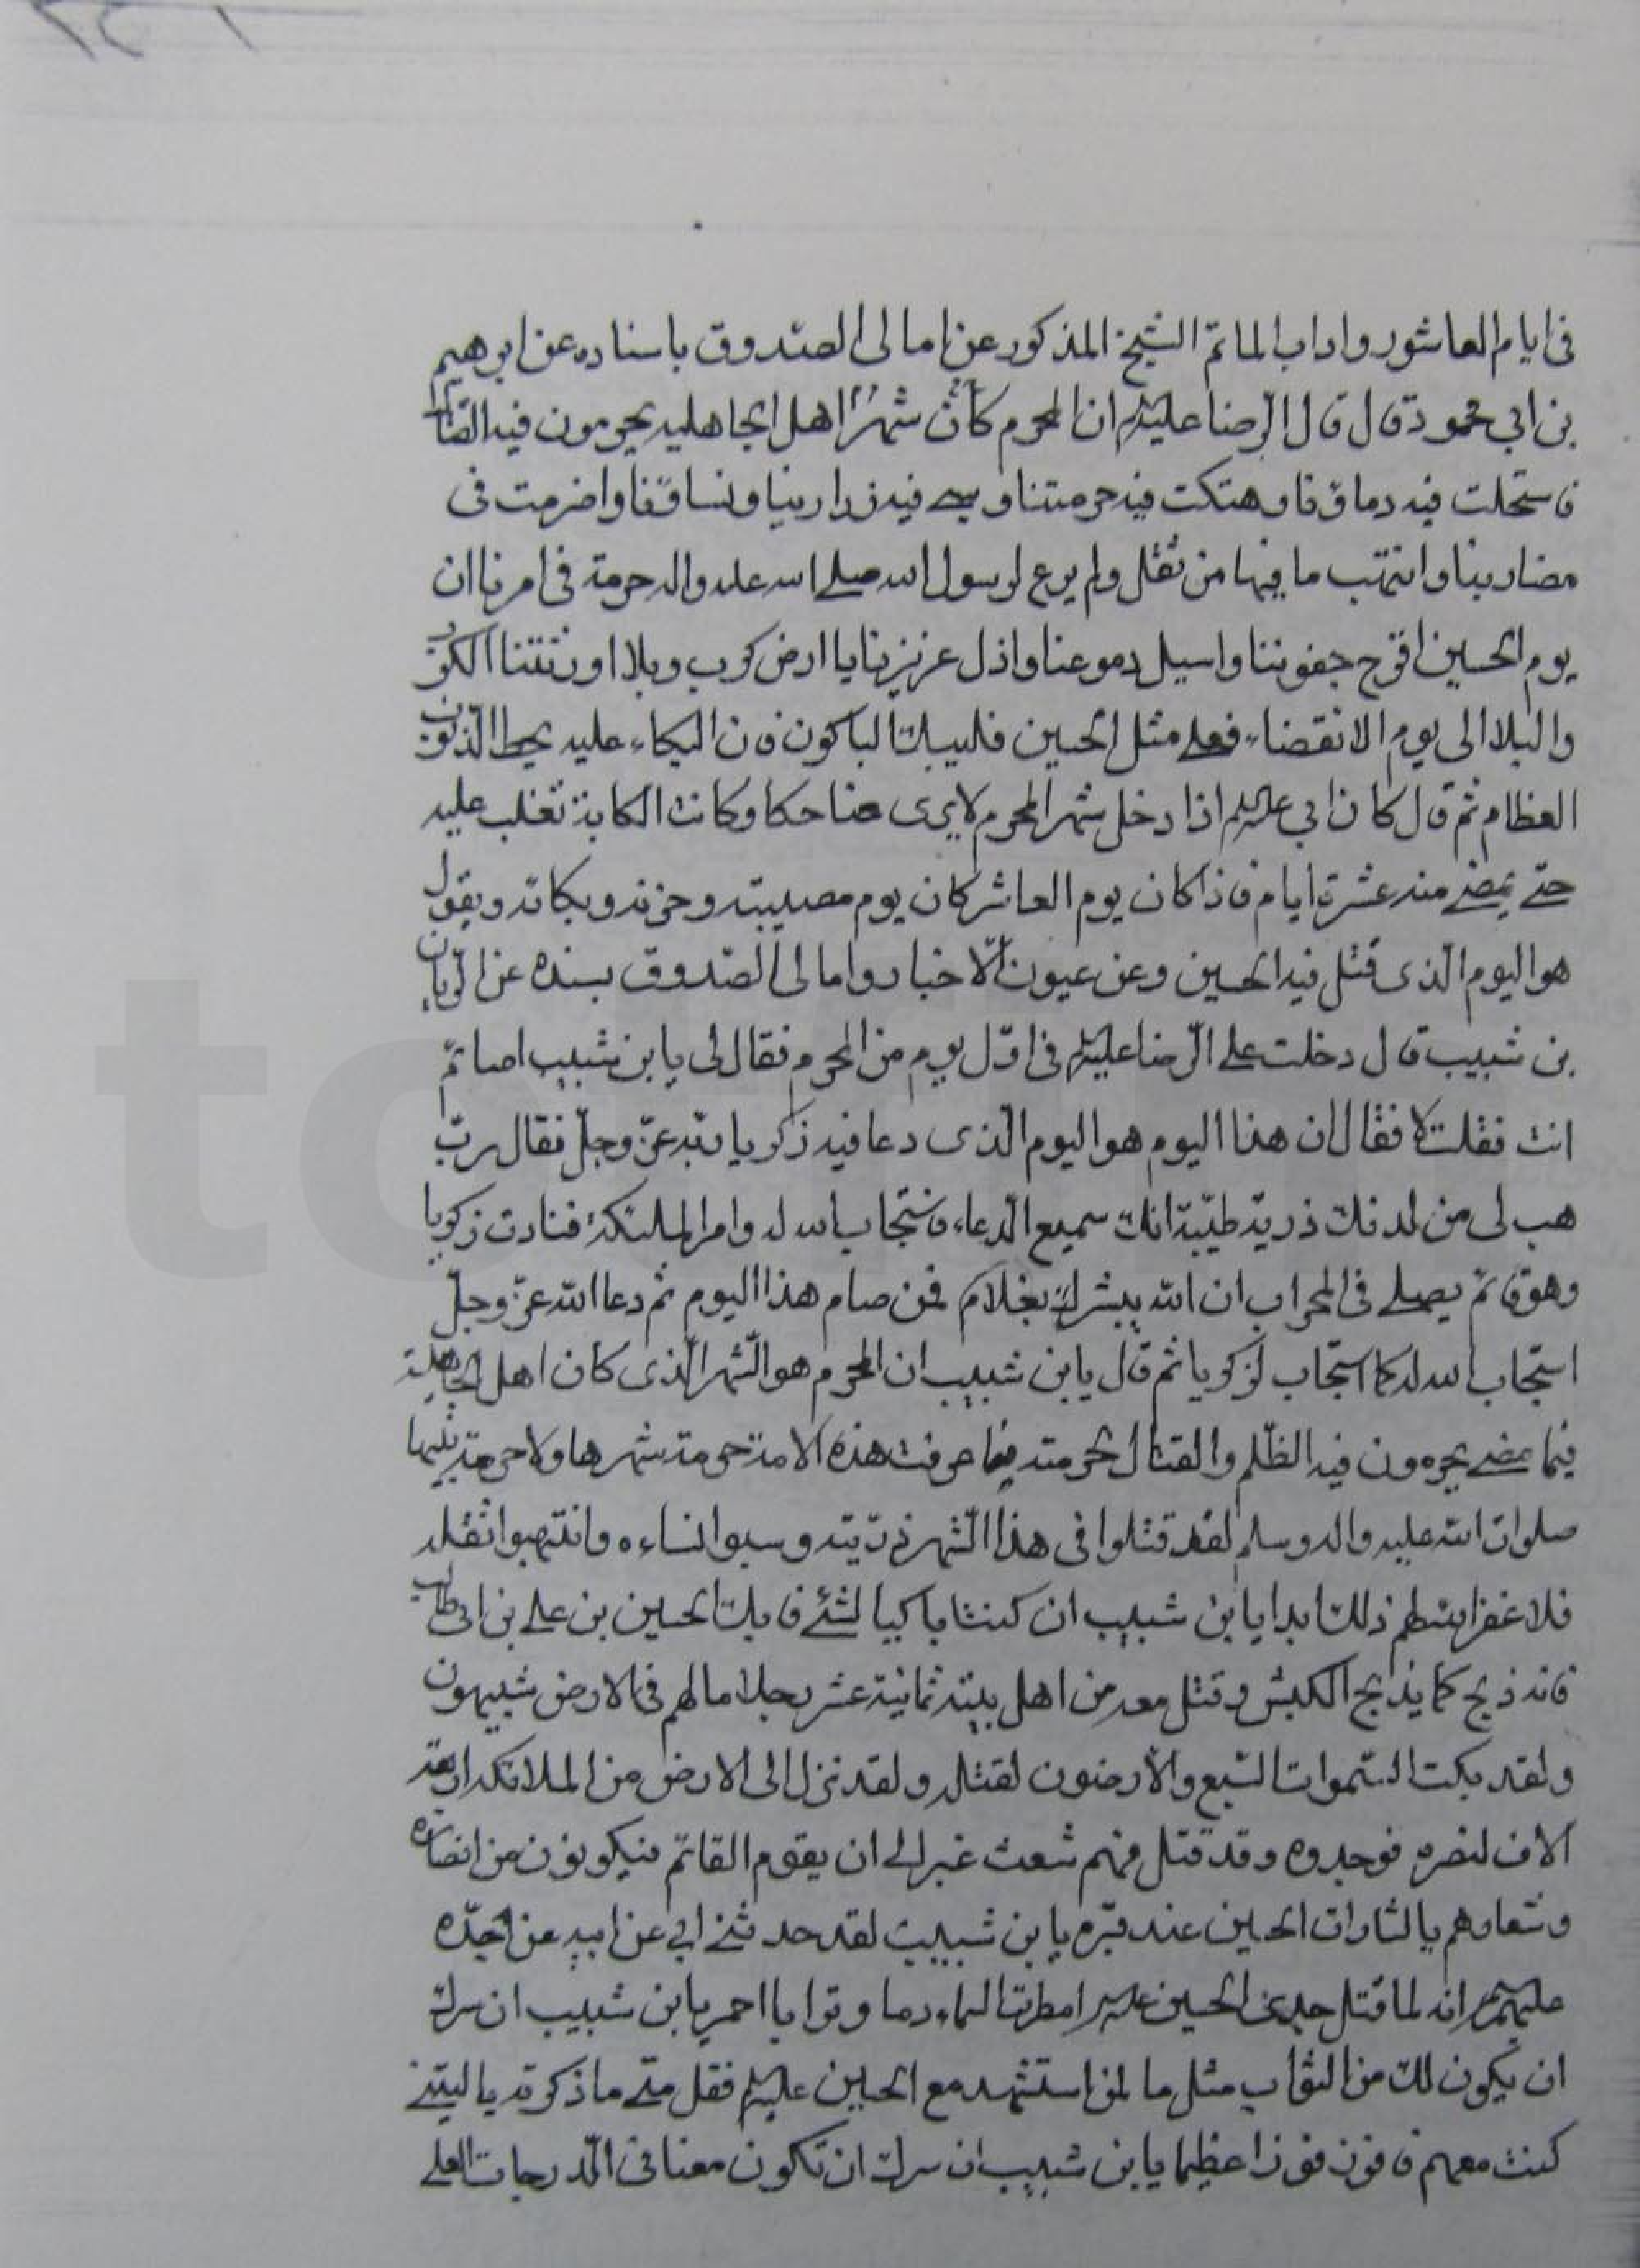 فى ايام العاشور واداب الماتم الشيخ المذكور عن امالى الصدوق باسناده عن ابرهيم
بن ابي محمود قال قال الرضا عليه ان المحرم كان شهرا اهل الجاهليه يحرمون فيه القتال
فاستحلت فيه دماؤنا وهتكت فيه حرمتنا وسبى فيه ذرارينا ونساؤنا واضرمت فى
مضاربنا وانتهب ما فيها من ثقل ولم يرع لرسول الله صلى الله عليه واله حرمة فى امرنا ان
يوم الحسين اقرح جفوننا واسيل دموعنا واذل عزيزنا يا ارض كرب وبلا اورثتنا الكرب
والبلا الى يوم الانقضاء فعلى مثل الحسين فليبك الباكون فان البكاء عليه يحط الذنوب
العظام ثم قال كان ابي عليه اذا دخل شهر المحرم لا يرى ضاحكا وكانت الكابة تغلب عليه
حتى يمضى منه عشرة ايام فاذا كان يوم العاشر كان يوم مصيبته وحزنه وبكائه ويقول
هو اليوم الذى قتل فيه الحسين وعن عيون الاخبار وامالى الصدوق بسنده عن الريان
بن شبيب قال دخلت على الرضا عليه فى اول يوم من المحرم فقال لى يا بن شبيب اصائم
انت فقلت لا فقال ان هذا اليوم هو اليوم الذى دعا فيه زكريا ربه عز وجل فقال رب
هب لى من لدنك ذرية طيبة انك سميع الدعاء فاستجاب الله له وامر الملئكة فنادت زكريا
وهو قائم يصلى فى المحراب ان الله يبشرك بغلام فمن صام هذا اليوم ثم دعا الله عز وجل
استجاب الله له كما استجاب لزكريا ثم قال يا بن شبيب ان المحرم هو الشهر الذى كان اهل الجاهلية
فيما مضى يحرمون فيه الظلم والقتال لحرمته فما عرفت هذه الامة حرمة شهرها ولا حرمة نبيها
صلوات الله عليه واله وسلم لقد قتلوا فى هذا الشهر ذريته وسبوا نساءه وانتهبوا ثقله
فلا غفر الله لهم ذلك ابدا يا بن شبيب ان كنت باكيا لشئ فابك الحسين بن على بن ابى طالب
فانه ذبح كما يذبح الكبش وقتل معه من اهل بيته ثمانية عشر رجلا مالهم فى الارض شبيهون
ولقد بكت السموات السبع والارضون لقتله ولقد نزل الى الارض من الملائكة اربعة
الاف لنصره فوجدوه وقد قتل فهم شعث غبر الى ان يقوم القائم فيكونون من انصاره
وشعارهم يا لثارات الحسين عند قبره يا بن شبيب لقد حدثنى ابي عن ابيه عن جده
عليهم انه لما قتل جدى الحسين عليه امطرت السماء دما وترابا احمر يا بن شبيب ان سرك
ان يكون لك من الثواب مثل ما لمن استشهد مع الحسين عليه فقل متى ما ذكرته يا ليتنى
كنت معهم فافوز فوزا عظيما يا بن شبيب ان سرك ان تكون معنا فى الدرجات العلى